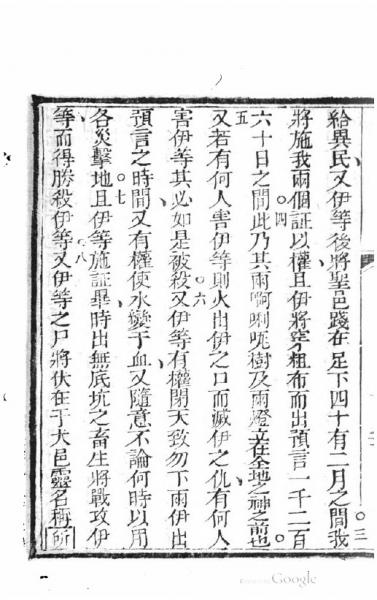 給異民又伊等後將聖邑踐在足下四十有二月之間我三
將施我兩個証以權且伊將穿粗布而出預言一千二百
六十日之間此乃其兩啊唎唲樹及兩燈立在全地之神之前也四
又若有何人害伊等則火出伊之口而滅伊之仇有何人五
害伊等其必如是被殺又伊等有權閉天致勿下雨伊出六
預言之時間又有權使水變于血又隨意不論何時以用
各災擊地且伊等施証畢時出無底坑之畜生將戰攻伊七
等而得勝殺伊等又伊等之尸將伏在于大邑靈名稱所八
Google